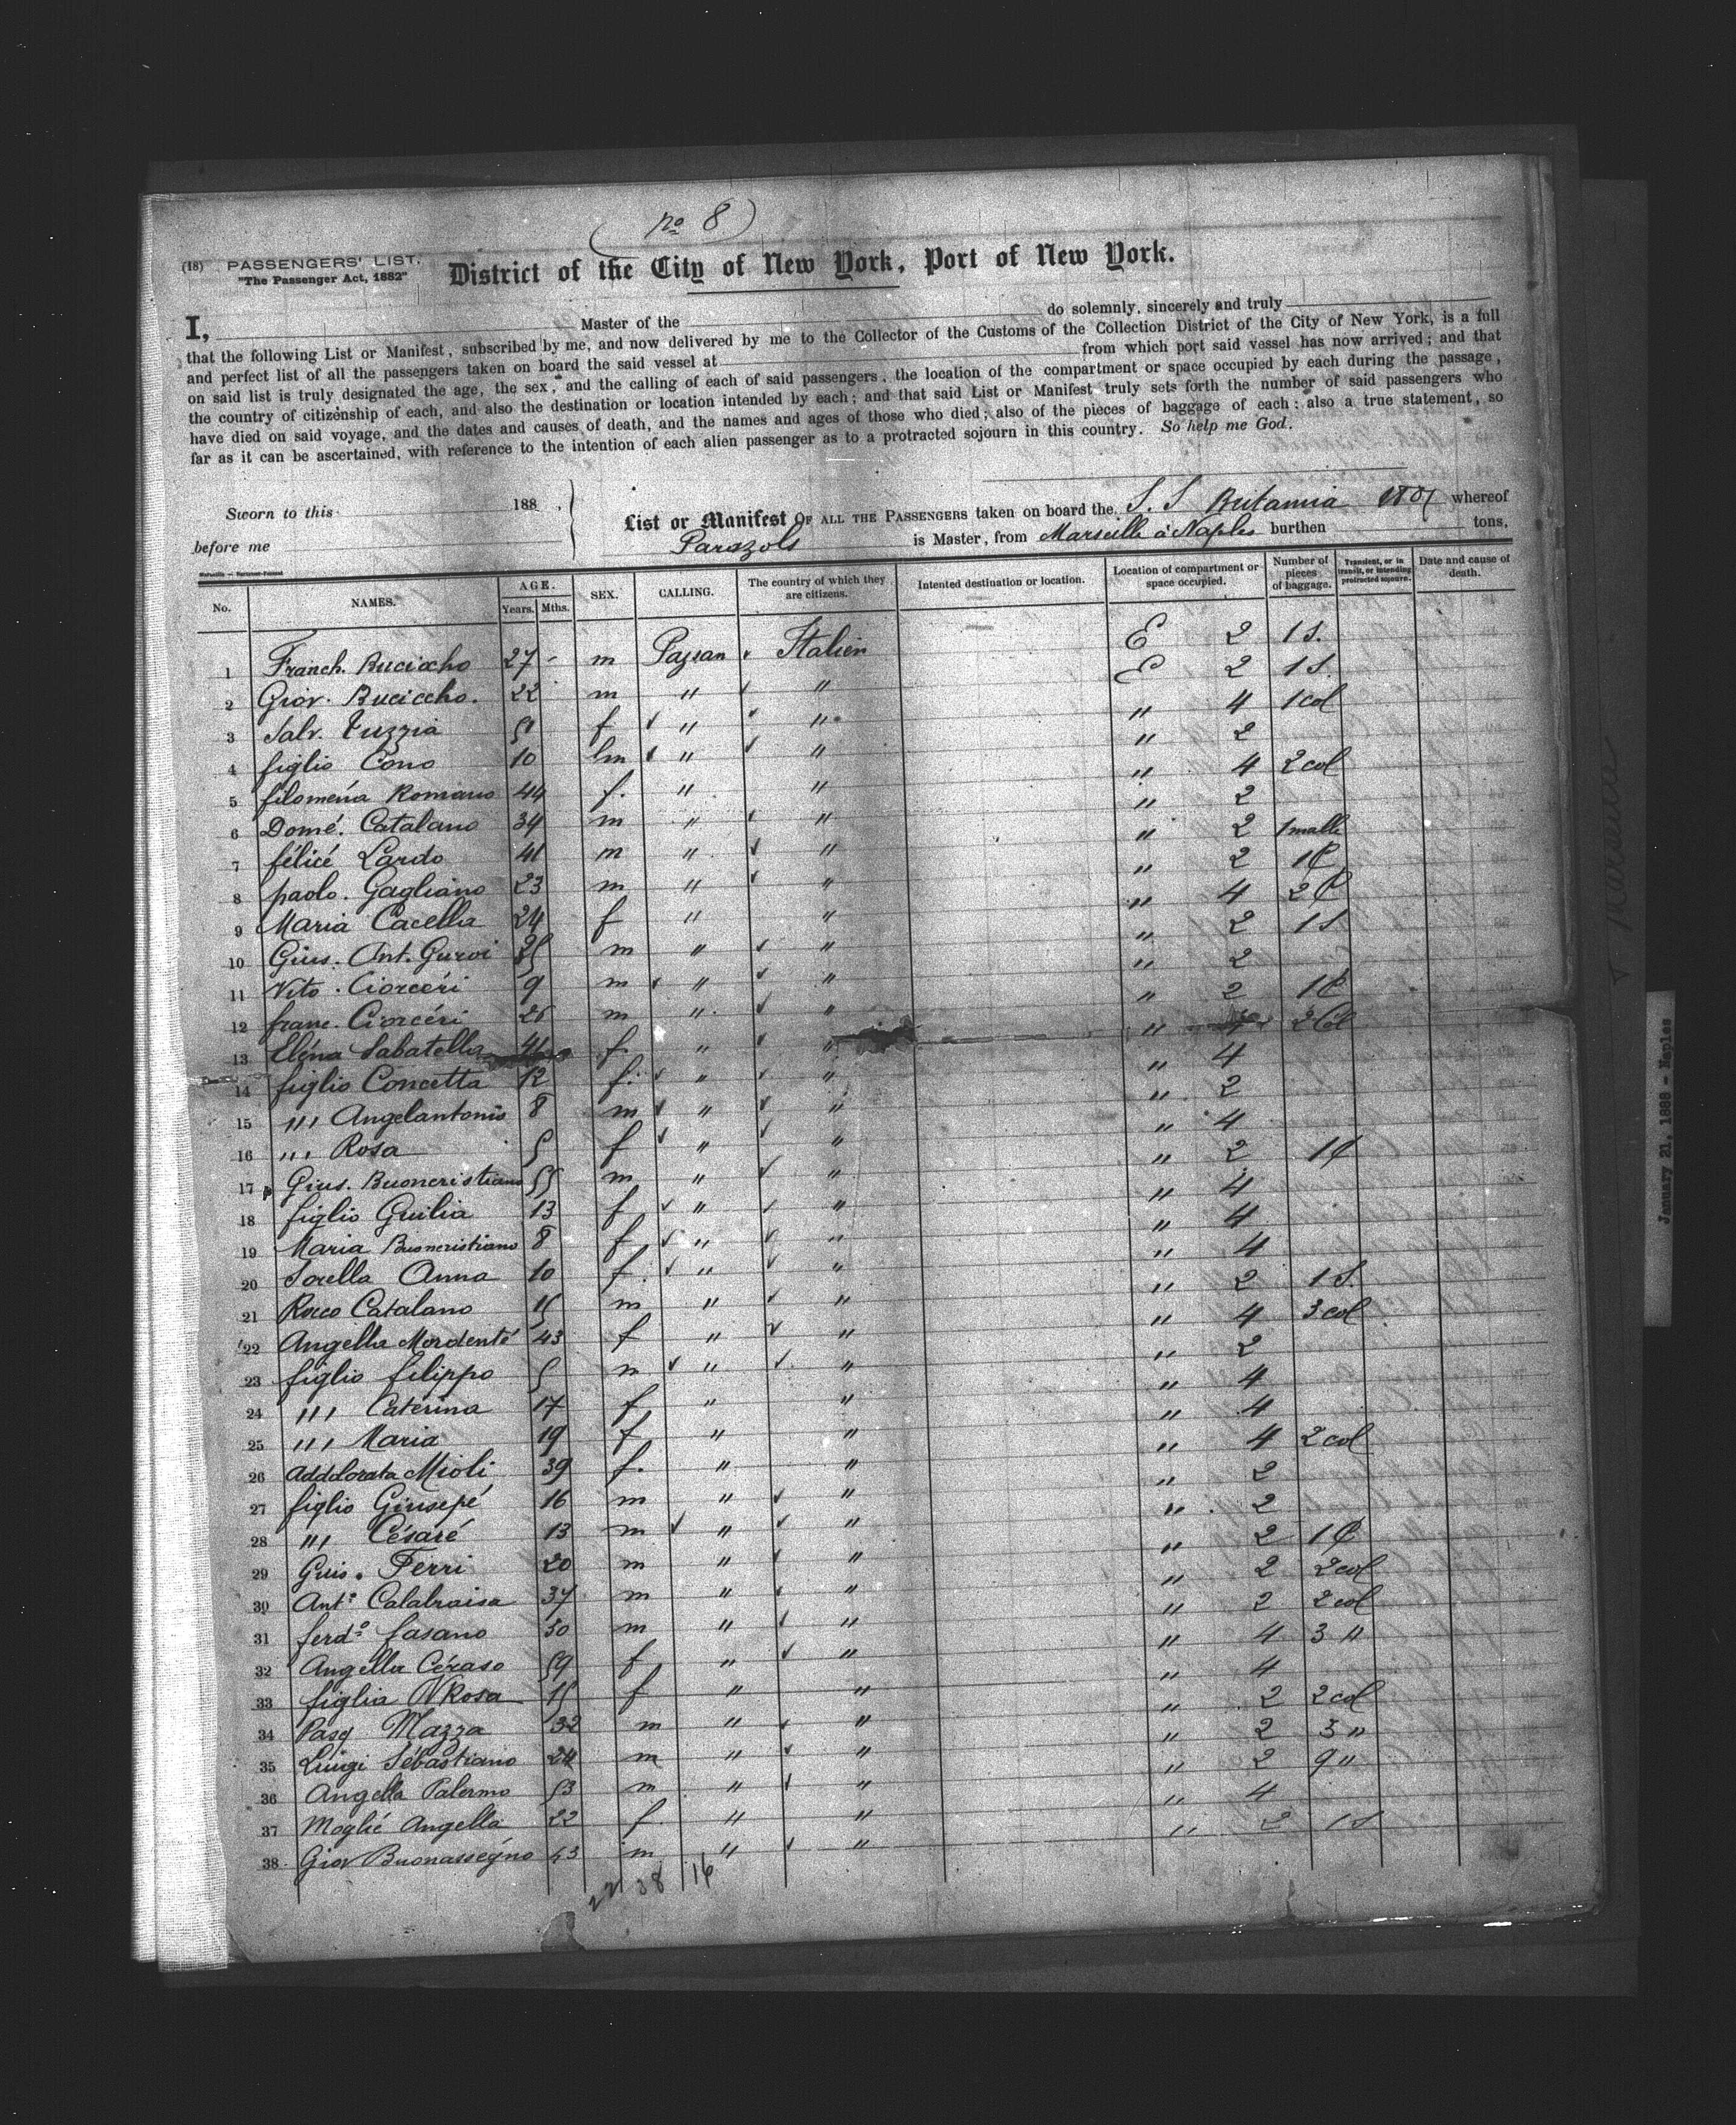 (no 8)
(18) PASSENGERS' LIST.
"The Passenger Act, 1882"
District of the City of New York, Port of New York.
I, Master of the do solemnly, sincerely and truly
that the following List or Manifest, subscribed by me, and now delivered by me to the Collector of the Customs of the Collection District of the City of New York, is a full
and perfect list of all the passengers taken on board the said vessel at from which port said vessel has now arrived; and that
on said list is truly designated the age, the sex, and the calling of each of said passengers, the location of the compartment or space occupied by each during the passage,
the country of citizenship of each, and also the destination or location intended by each; and that said List or Manifest truly sets forth the number of said passengers who
have died on said voyage, and the dates and causes of death, and the names and ages of those who died; also of the pieces of baggage of each: also a true statement, so
far as it can be ascertained, with reference to the intention of each alien passenger as to a protracted sojourn in this country. So help me God.
Sworn to this 188 .
before me
List or Manifest OF ALL THE PASSENGERS taken on board the S. S Britannia whereof
Parazols is Master, from Marseille à Naples burthen tons,
No. NAMES. AGE. Years. Mths. SEX. CALLING. The country of which they are citizens. Intented destination or location. Location of compartment or space occupied. Number of pieces of baggage. Transient, or in transit, or intending protracted sojourn. Date and cause of death.
1 Franch. Buciccho 27 - m Paysan Italien E 2 1 S.
2 Giov. Buciccho. 22 m " " E 2 1 S.
3 Salv. Tuzzia f " " " 4 1 col
4 figlio Cono 10 m " " " 2
5 filomena Romano 44 f. " " " 4 2 col
6 Domé. Catalano 34 m " " " 2
7 félicé Lardo 41 m " " " 2 1 malle
8 paolo. Gagliano 23 m " " " 2 1 C
9 Maria Cacella 24 f " " " 4 2 C
10 Gius. Ant. m " " " 2 1 S
11 Vito. Ciorcéri 9 m " " " 2
12 franc. Ciorcéri 26 m " " " 2 1 C
13 Eléna Sabatella 41 f " " " 2 Col
14 figlio Concetta 12 f. " " " 4
15 " Angelantonio 8 m " " " 2
16 " Rosa 5 f " " " 4
17 Gius. Buoncristiano 55 m " " " 2 1 C
18 figlio Guilia 13 f " " " 4
19 Maria Buoncristiano 8 f " " " 4
20 Sorella Anna 10 f. " " " 4
21 Rocco Catalano 15 m " " " 2 1 S.
22 Angella Mordenté 43 f " " " 4 3 col
23 figlio filippo 5 m " " " 2
24 " Caterina 17 f " " " 4
25 " Maria 19 f " " " 4
26 Addolorata Mioli 39 f. " " " 4 2 col
27 figlio Giusepé 16 m " " " 2
28 " Césaré 13 m " " " 2
29 Guis. Ferri 20 m " " " 2 1 C
30 Anto Calabraisa 37 m " " " 2 2 col
31 ferdo fasano 30 m " " " 2 2 col
32 Angella Céraso 59 f " " " 4 3 "
33 figlia Rosa 15 f " " " 4
34 Pasq Mazza 32 m " " " 2 2 col
35 Luigi Sébastiano 24 m " " " 2 3 "
36 Angella Palermo 53 m " " " 2 9 "
37 Moglié Angella 22 f " " " 4
38 Giov Buonassegno 43 m " " " 2 1 S
22 38 16
January 21, 1888 - Naples